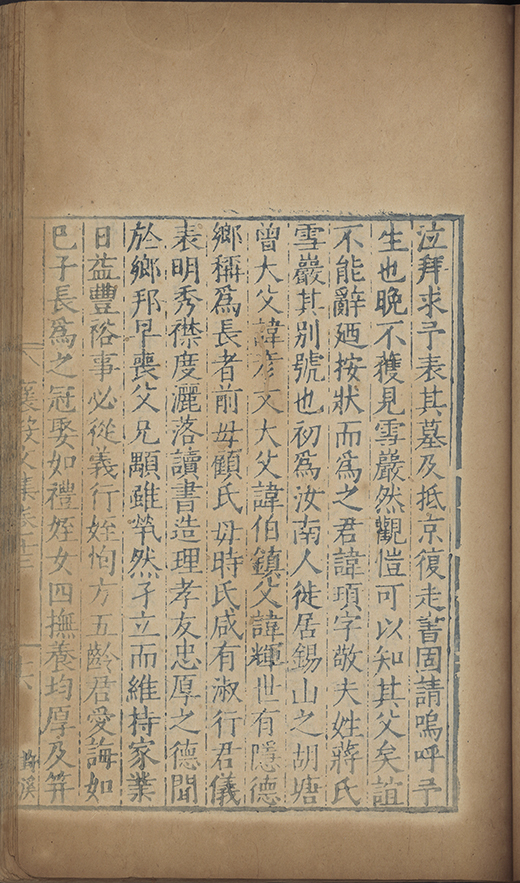 泣拜求予表其墓及抵京復走書固請嗚呼予
生也晚不獲見雪巖然觀愷可以知其父矣誼
不能辭廼按狀而爲之君諱頊字敬夫姓蔣氏
雪巖其别號也初爲汝南人徙居錫山之胡塘
曾大父諱彦文大父諱伯鎮父諱輝世有隱德
鄉稱爲長者前母顧氏母時氏咸有淑行君儀
表明秀襟度灑落讀書造理孝友忠厚之德聞
於鄉邦早喪父兄顒雖煢然孑立而維持家業
日益豐裕事必從義行姪恂方五齡君愛誨如
巳子長爲之冠娶如禮姪女四撫養均厚及笄
襄毅文集卷